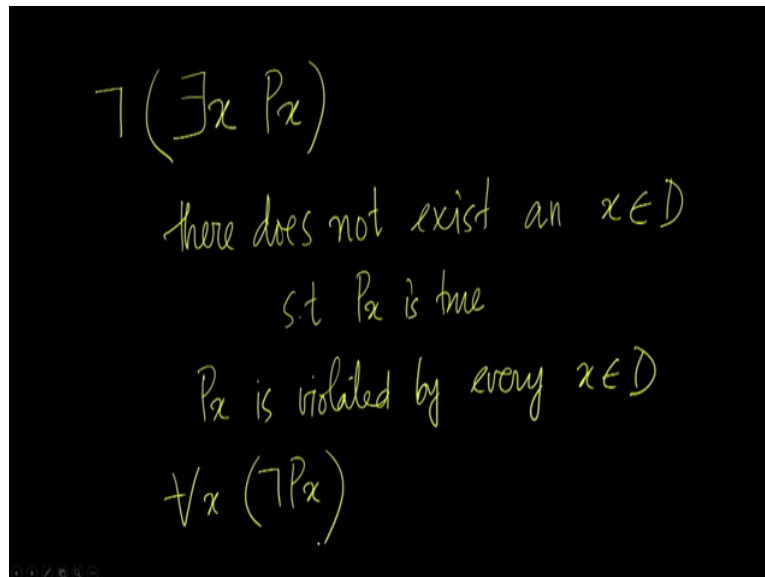 ¬(∃x Px)
there does not exist an x∈D
s.t Px is true
Px is violated by every x∈D
∀x (¬Px)